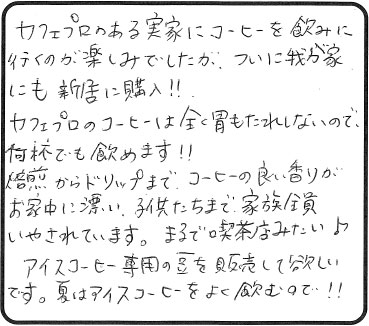 カフェプロのある実家にコーヒーを飲みに
行くのが楽しみでしたが、ついに我が家
にも新居に購入!!
カフェプロのコーヒーは全く胃もたれしないので、
何杯でも飲めます!!
焙煎からドリップまで、コーヒーの良い香りが
お家中に漂い、子供たちまで家族全員
いやされています。まるで喫茶店みたい♪
アイスコーヒー専用の豆を販売して欲しい
です。夏はアイスコーヒーをよく飲むので!!